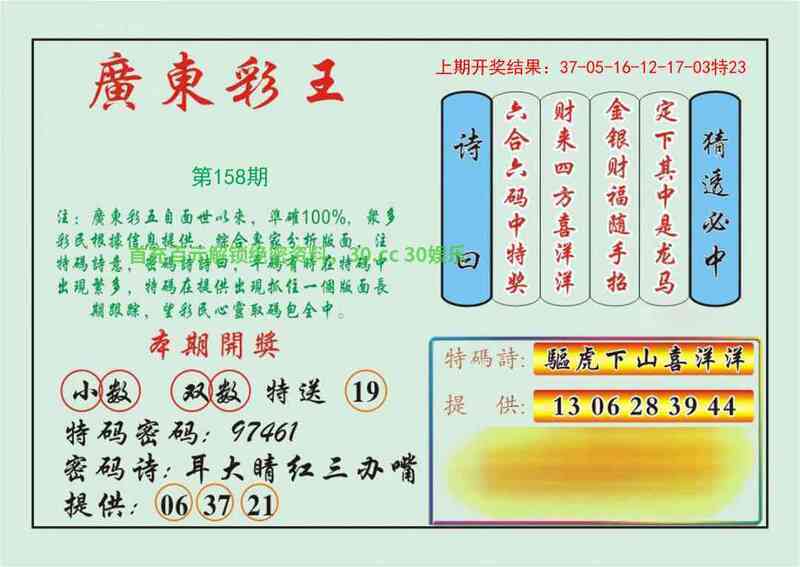 廣東彩王
第158期
注：廣東彩五自面世以來，準確100%，衆多
彩民根據信息提供、綜合專家分析版面，注
特碼詩意，密碼詩詩曰，平碼看將在特碼中
出現繁多，特碼在提供出現抓住一個版面長
期跟踪，望彩民心靈取碼包全中。
30.cc 30娱乐
本期開獎
小数 双数 特送 19
特码密码：97461
密码诗：耳大睛红三办嘴
提供：06 37 21
上期开奖结果：37-05-16-12-17-03特23
诗曰
六合六码中特奖
财来四方喜洋洋
金银财福随手招
定下其中是龙马
猜透必中
特码詩：驅虎下山喜洋洋
提 供：13 06 28 39 44